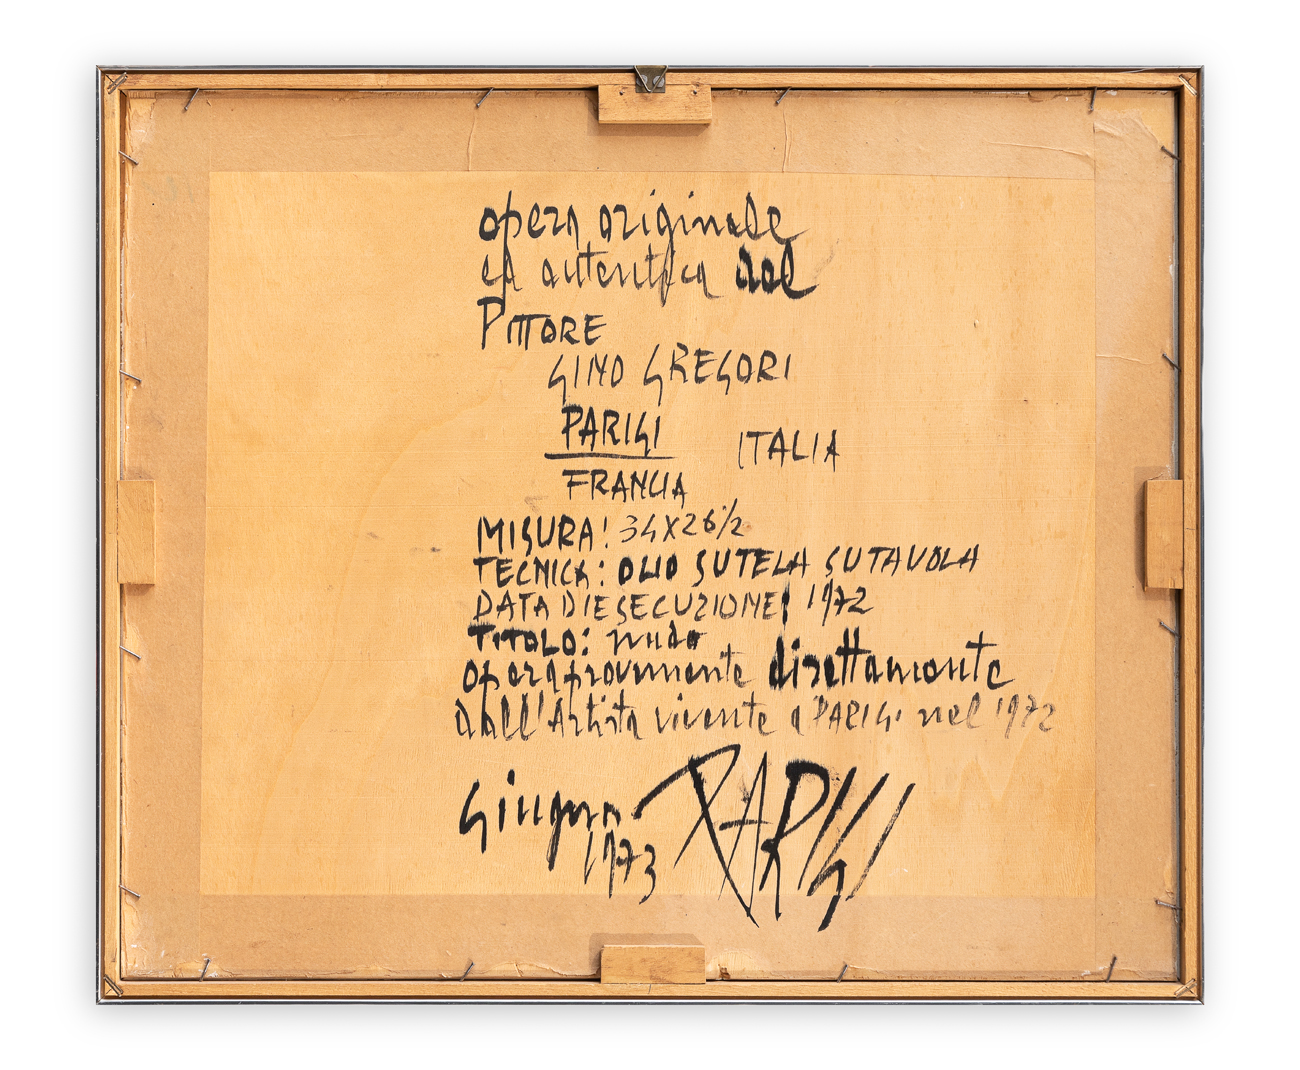 opera originale
ed autentica del
PITTORE
GINO GREGORI
PARIGI
ITALIA
FRANCIA
MISURA: 34X26½
TECNICA: OLIO SU TELA SU TAVOLA
DATA DI ESECUZIONE: 1972
TITOLO: nudo
opera proveniente direttamente
dall'Artista vivente a PARIGI nel 1972
Giugno PARIGI
1973